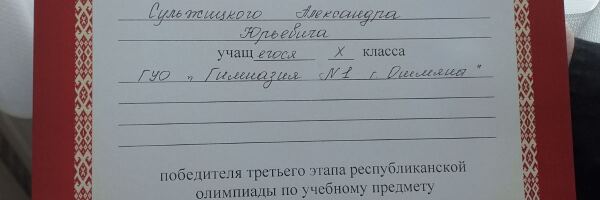 Сульжицкого Александра
Юрьевича
учащегося X класса
ГУО „Гимназия №1 г. Ошмяны"
победителя третьего этапа республиканской
олимпиады по учебному предмету